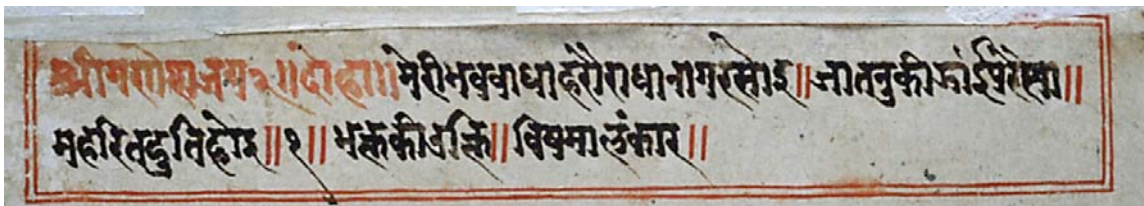 श्रीगणेशायनमः॥दोहा॥मेरीभवबाधाहरौराधानागरसोइ॥जातनुकीझांईपरैस्या॥
महरितदुतिहोइ॥१॥भक्तकीउक्ति॥विषमालंकार॥